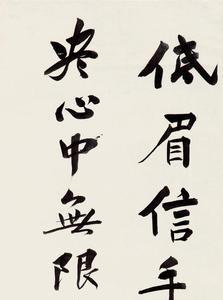 低眉信手
尽心中無限